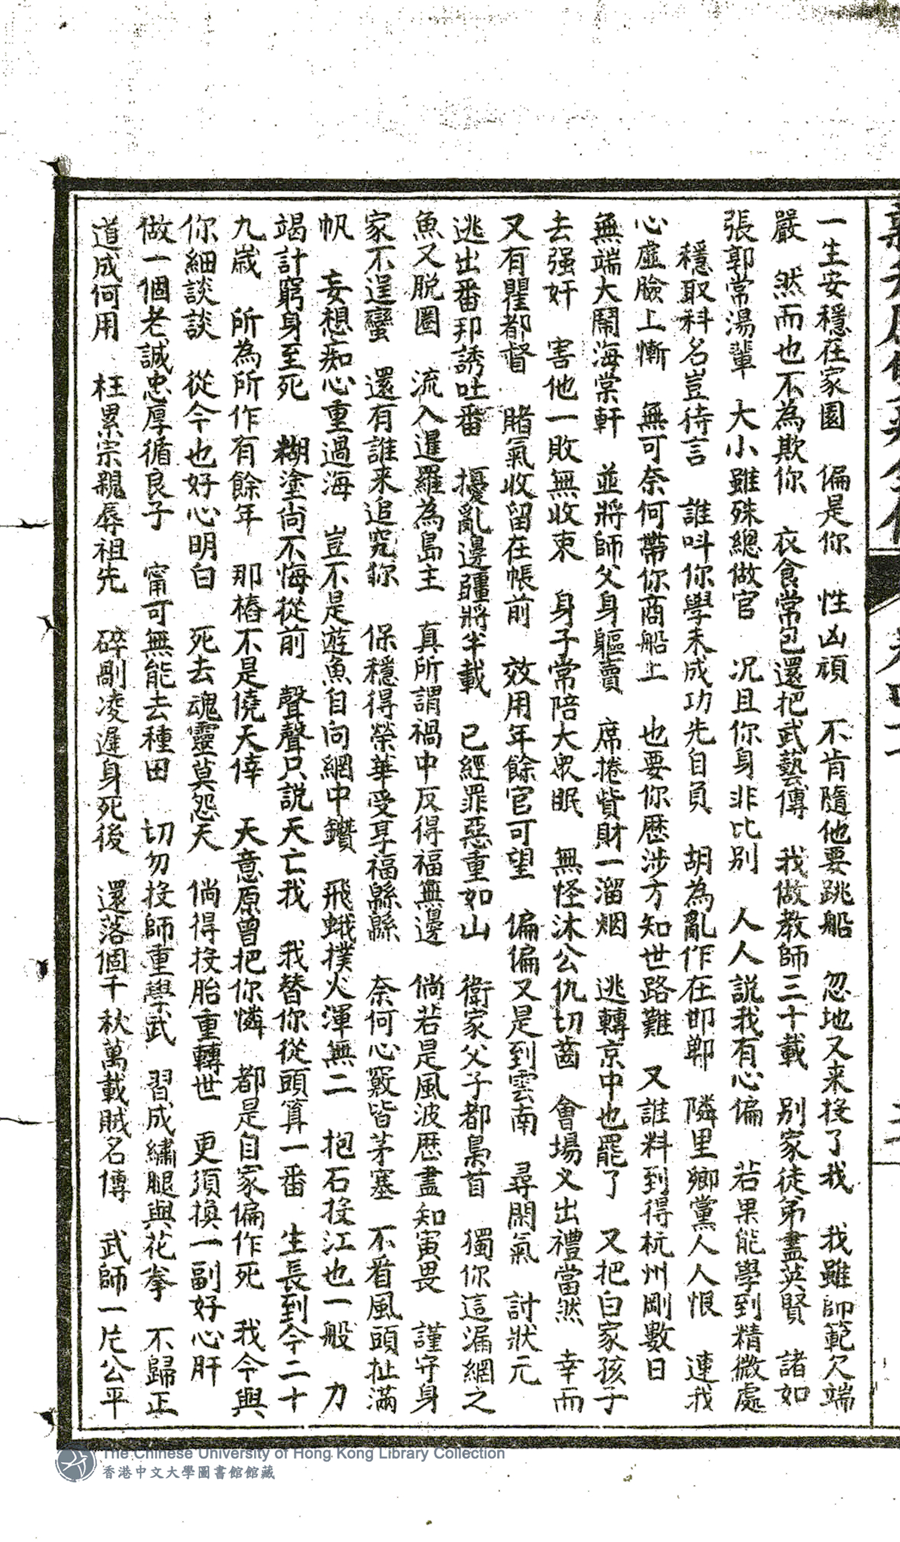 一生安穩在家園　偏是你　性凶頑　不肯隨他要跳船　忽地又来投了我　我雖師範欠端
嚴　然而也不為欺你　衣食常包還把武藝傳　我做教師三十載　别家徒弟盡英賢　諸如
張郭常湯輩　大小雖殊總做官　况且你身非比别　人人説我有心偏　若果能學到精微處
穩取科名豈待言　誰呌你學未成功先自負　胡為亂作在邯鄲　隣里鄉黨人人恨　連我
心虛臉上慚　無可奈何帶你商船上　也要你歷涉方知世路難　又誰料到得杭州剛數日
無端大鬧海棠軒　並將師父身軀賣　席捲貲財一溜烟　逃轉京中也罷了　又把白家孩子
去强奸　害他一敗無收束　身子常陪大衆眠　無怪沐公仇切齒　會場义出禮當然　幸而
又有瞿都督　賭氣收留在帳前　效用年餘官可望　偏偏又是到雲南　尋閙氣　討狀元
逃出番邦誘吐番　擾亂邊疆將半載　已經罪惡重如山　衛家父子都梟首　獨你這漏網之
魚又脱圈　流入暹羅為島主　真所謂禍中反得福無邊　倘若是風波歷盡知寅畏　謹守身
家不逞蠻　還有誰来追究你　保穩得榮華受享福緜緜　奈何心竅皆茅塞　不看風頭扯滿
帆　妄想痴心重過海　豈不是遊魚自向網中鑽　飛蛾撲火渾無二　抱石投江也一般　力
竭計窮身至死　糊塗尚不悔從前　聲聲只説天亡我　我替你從頭算一番　生長到今二十
九歲　所為所作有餘年　那樁不是僥天倖　天意原曾把你憐　都是自家偏作死　我今與
你細談談　從今也好心明白　死去魂靈莫怨天　倘得投胎重轉世　更須換一副好心肝
做一個老誠忠厚循良子　甯可無能去種田　切勿投師重學武　習成繡腿與花拳　不歸正
道成何用　枉累宗親辱祖先　碎剮凌遲身死後　還落個千秋萬載賊名傳　武師一片公平
The Chinese University of Hong Kong Library Collection
香港中文大學圖書館館藏